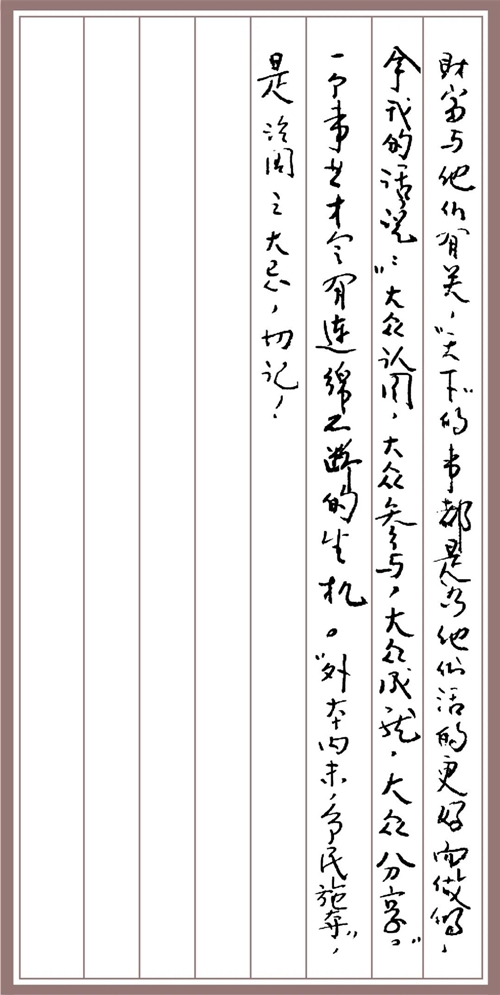 財富与他们有关，“天下”的事都是为他们活的更好而做的，
拿我的话说：“大众认同，大众参与，大众成就，大众分享。”
一个事业才会有连绵不断的生机。“外本内末，争民施夺”，
是治国之大忌，切记！